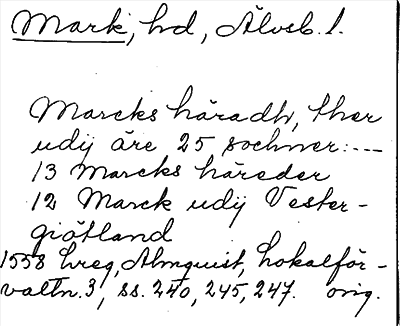 Mark, hd, Älvsb. l.
Marcks häradh, ther
udij äre 25 sochner:---
13 Marcks häreder
12 Marck udij Vester-
giötland
1558 hreg, Almquist, Lokalför-
valtn. 3, ss. 240, 245, 247. orig.